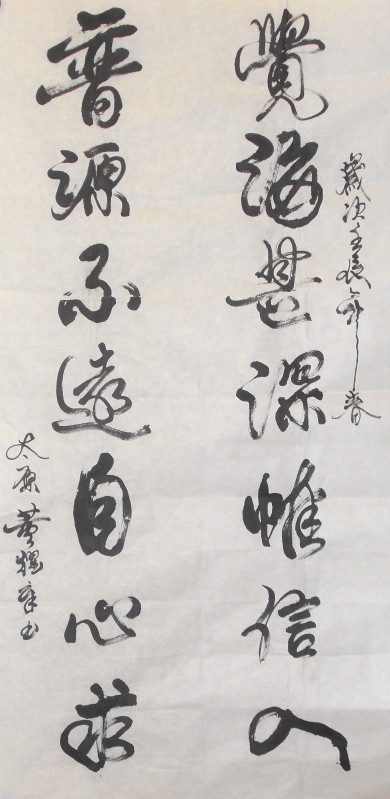 歲次壬辰年之春
覺海甚深惟信入
普源不遠自心求
太原書